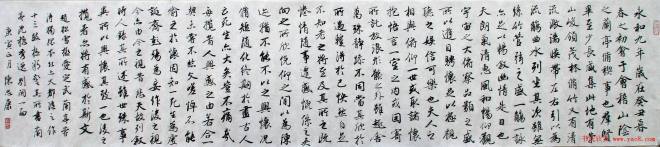 永和九年歲在癸丑暮
春之初會于會稽山陰
之蘭亭脩禊事也群賢
畢至少長咸集此地有崇
山峻領茂林脩竹有清
流激湍映帶左右引以為
流觴曲水列坐其次雖無
絲竹管弦之盛一觴一詠
亦足以暢敘幽情是日也
天朗氣清惠風和暢仰觀
宇宙之大俯察品類之盛
所以遊目騁懷足以極視
聽之娛信可樂也夫人之
相與俯仰一世或取諸懷
抱悟言一室之內或因寄
所託放浪形骸之外雖趣舍
萬殊靜躁不同當其欣
於所遇暫得於己快然自足
不知老之將至及其所之既
惓情隨事遷感慨係之矣
向之所欣俛仰之間以為陳
迹猶不能不以之興懷況
脩短隨化終期於盡古人
云死生亦大矣豈不痛哉
每攬昔人興感之由若合一
契未嘗不臨文嗟悼不能喻
之於懷固知一死生為虛誕
齊彭殤為妄作後之視今
亦由今之視昔悲夫故列敘
時人錄其所述雖世殊事
異所以興懷其致一也後之
攬者亦將有感於斯文
庚寅二月陳忠康